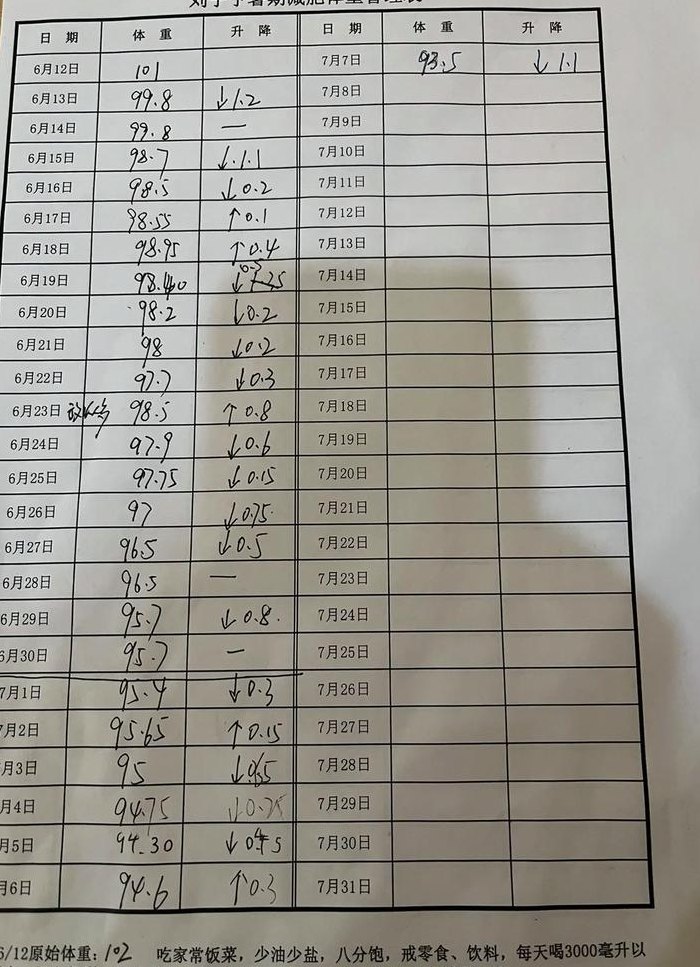 期减肥体重管理表
日 期 体 重 升 降 日 期 体 重 升 降
6月12日 101 7月7日 93.5 ↓1.1
6月13日 99.8 ↓1.2 7月8日
6月14日 99.8 — 7月9日
6月15日 98.7 ↓1.1 7月10日
6月16日 98.5 ↓0.2 7月11日
6月17日 98.55 ↑0.1 7月12日
6月18日 98.95 ↑0.4 7月13日
6月19日 98.40 ↓0.5 7月14日
6月20日 98.2 ↓0.2 7月15日
6月21日 98 ↓0.2 7月16日
6月22日 97.7 ↓0.3 7月17日
6月23日 98.5 ↑0.8 7月18日
6月24日 97.9 ↓0.6 7月19日
6月25日 97.75 ↓0.15 7月20日
6月26日 97 ↓0.75 7月21日
6月27日 96.5 ↓0.5 7月22日
6月28日 96.5 — 7月23日
6月29日 95.7 ↓0.8 7月24日
6月30日 95.7 — 7月25日
7月1日 95.4 ↓0.3 7月26日
7月2日 95.65 ↑0.15 7月27日
月3日 95 ↓0.65 7月28日
月4日 94.75 ↓0.25 7月29日
月5日 94.30 ↓0.45 7月30日
月6日 94.6 ↑0.3 7月31日
6/12原始体重：102 吃家常饭菜，少油少盐，八分饱，戒零食、饮料，每天喝3000毫升以